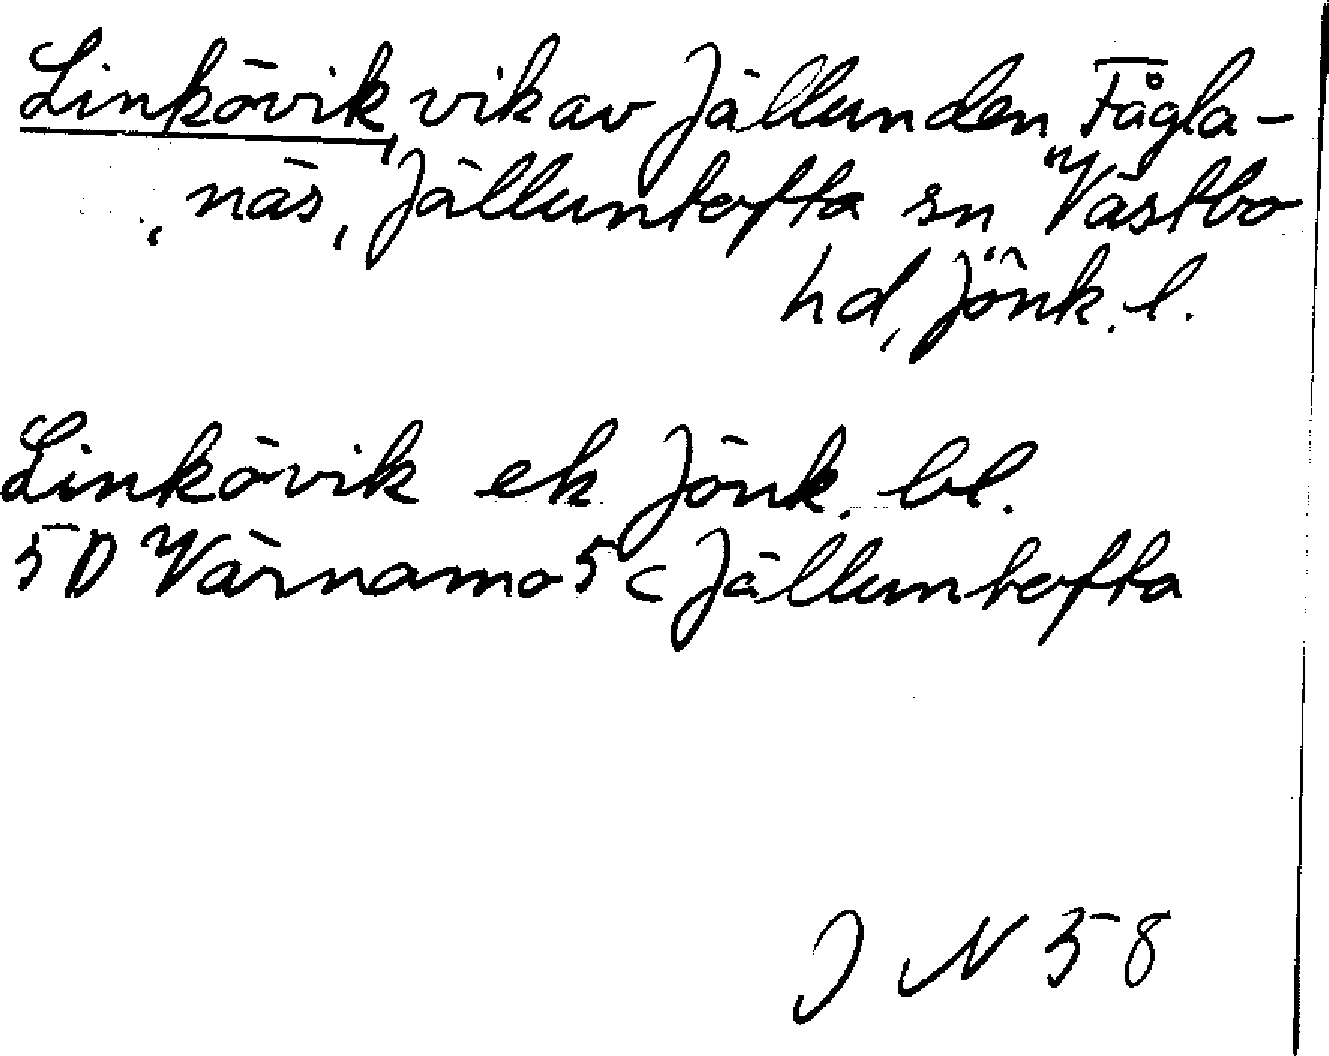 Linkövik, vik av Jällunden, Fågla-
näs, Jälluntofta sn, Västbo
hd, Jönk. l.
Linkövik ek Jönk. bl.
5D Värnamo 5c Jälluntofta
J N 58